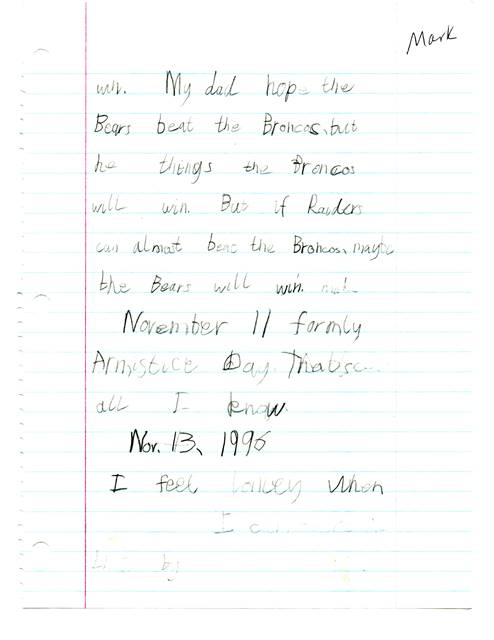 Mark
win. My dad hope the
Bears beat the Broncos, but
he things the Broncos
will win. But if Raiders
can almost beat the Broncos, maybe
the Bears will win.
November 11 formly
Armistice Day. Thats
all I know.
Nov. 13, 1996
I feel when
I
by